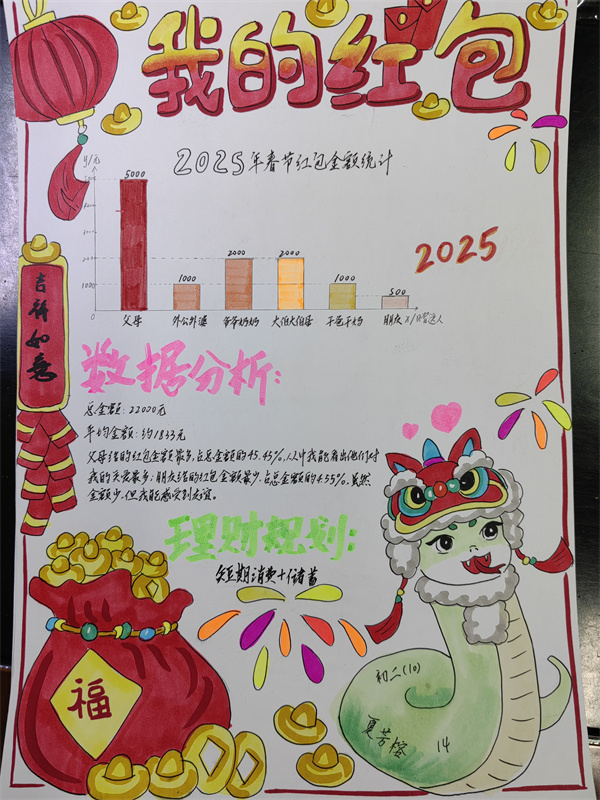 我的红包
2025年春节红包金额统计
y/元
5000
1000
2000
2000
1000
500
2000
1000
父母
外公外婆
爷爷奶奶
大伯大伯母
干爸干妈
朋友
2025
吉祥如意
数据分析:
总金额:22000元
平均金额:约1833元
父母给的红包金额最多,占总金额的45.45%,从中我能看出他们对
我的关爱最多;朋友给的红包金额最少,占总金额的4.55%,虽然
金额少,但我能感受到友谊。
理财规划:
短期消费+储蓄
福
初二(10)
夏芳榕
14